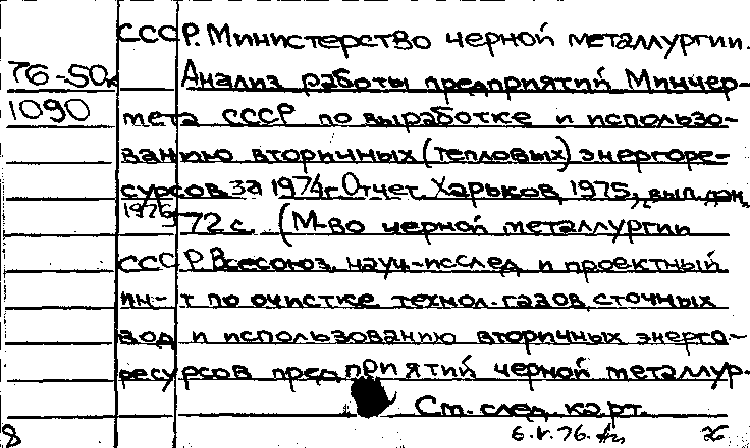 СССР. Министерство черной металлургии.
76-50к Анализ работы предприятий Минчер-
1090 мета СССР по выработке и использо-
ванию вторичных (тепловых) энергоре-
сурсов за 1974г. Отчет. Харьков, 1975, вып. дан.
1976.
72 с. (М-во черной металлургии
СССР. Всесоюз. науч-исслед и проектный
ин-т по очистке технол. газов, сточных
вод и использованию вторичных энерго-
ресурсов предприятий черной металлур-
См. след. карт.
8 6.V.76. 26